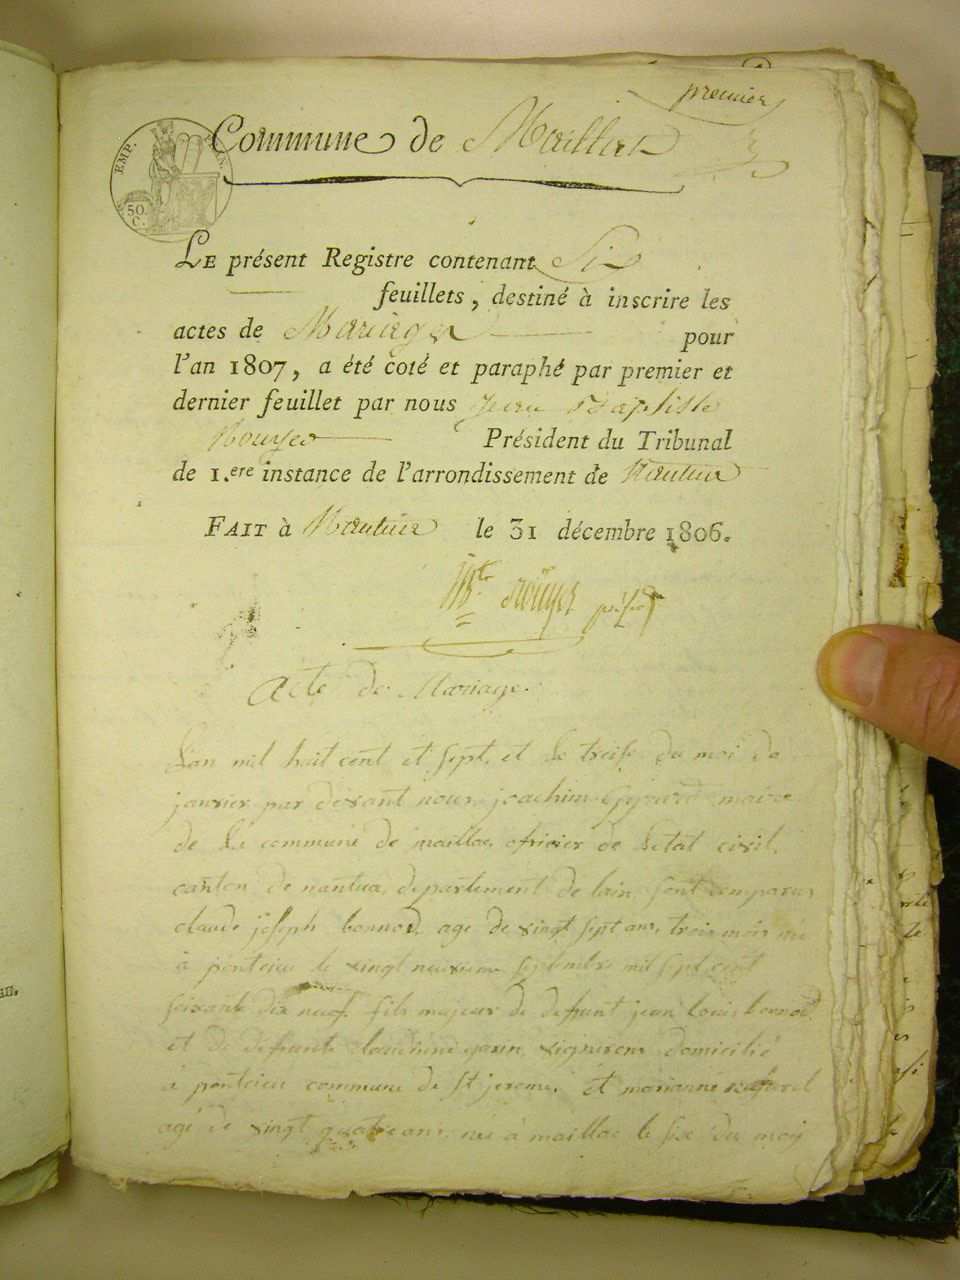 premier
Commune de Maillat
EMP. FRAN.
50. C.
LE présent Registre contenant Six
feuillets, destiné à inscrire les
actes de Mariages pour
l'an 1807, a été coté et paraphé par premier et
dernier feuillet par nous Jean Baptiste
Rouyer Président du Tribunal
de 1.ere instance de l'arrondissement de Nantua
FAIT à Nantua le 31 décembre 1806.
Bte Roüyer
Acte de Mariage.
Lan mil huit cent et sept, et le treise du moi de
janvier par devant nous joachim maire
de la commune de maillac oficier de Letat civil,
canton de nantua, departement de lain sont comparus
claude joseph bonnod, age de vingt sept ans, trois mois né
à ponteieu le vingt neuvieme septembre mil sept cent
soixante dix neuf, fils majeur de defunt jean louis bonnod
et de defunte claudine vigneron domicilié
à ponteieu commune de St jerome, et marianne
agé de vingt quatre ans, né à maillac le six du moy